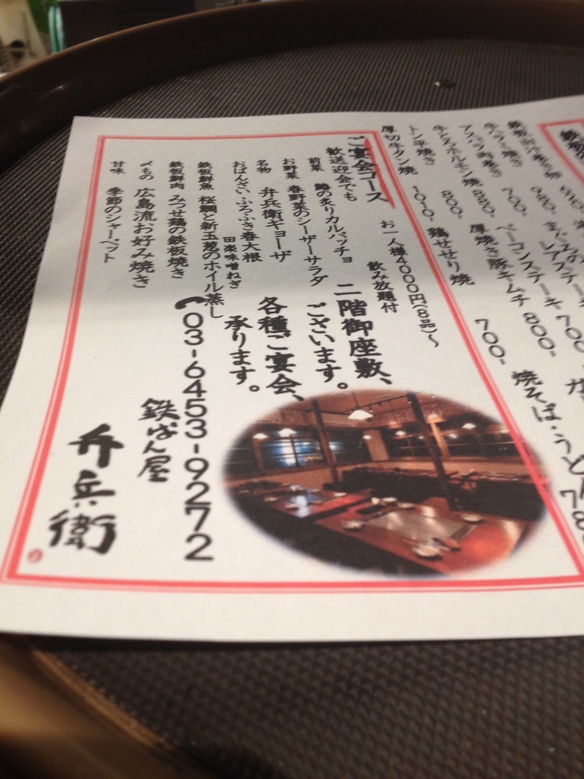 牛ハラミ焼き
700-
アスパラ肉巻き
880-
牛ヒレホルモン焼
800-
トン平焼き
厚切牛タン焼
1010-
ベーコンステーキ
800-
厚焼き豚キムチ
700-
鶏せせり焼
焼そば・うどん
ご宴会コース
お一人様4000円(8品)〜
飲み放題付
歓送迎会でも
前菜
鰆の炙りカルパッチョ
お野菜
春野菜のシーザーサラダ
名物
弁兵衛ギョーザ
おばんざい
ふろふき春大根
田楽味噌ねぎ
鉄板鮮魚
桜鯛と新玉葱のホイル蒸し
鉄板鮮肉
みつせ鶏の鉄板焼き
〆もの
広島流お好み焼き
甘味
季節のシャーベット
二階御座敷、
ございます。
各種ご宴会、
承ります。
03-6453-9272
鉄ぱん屋
弁兵衛